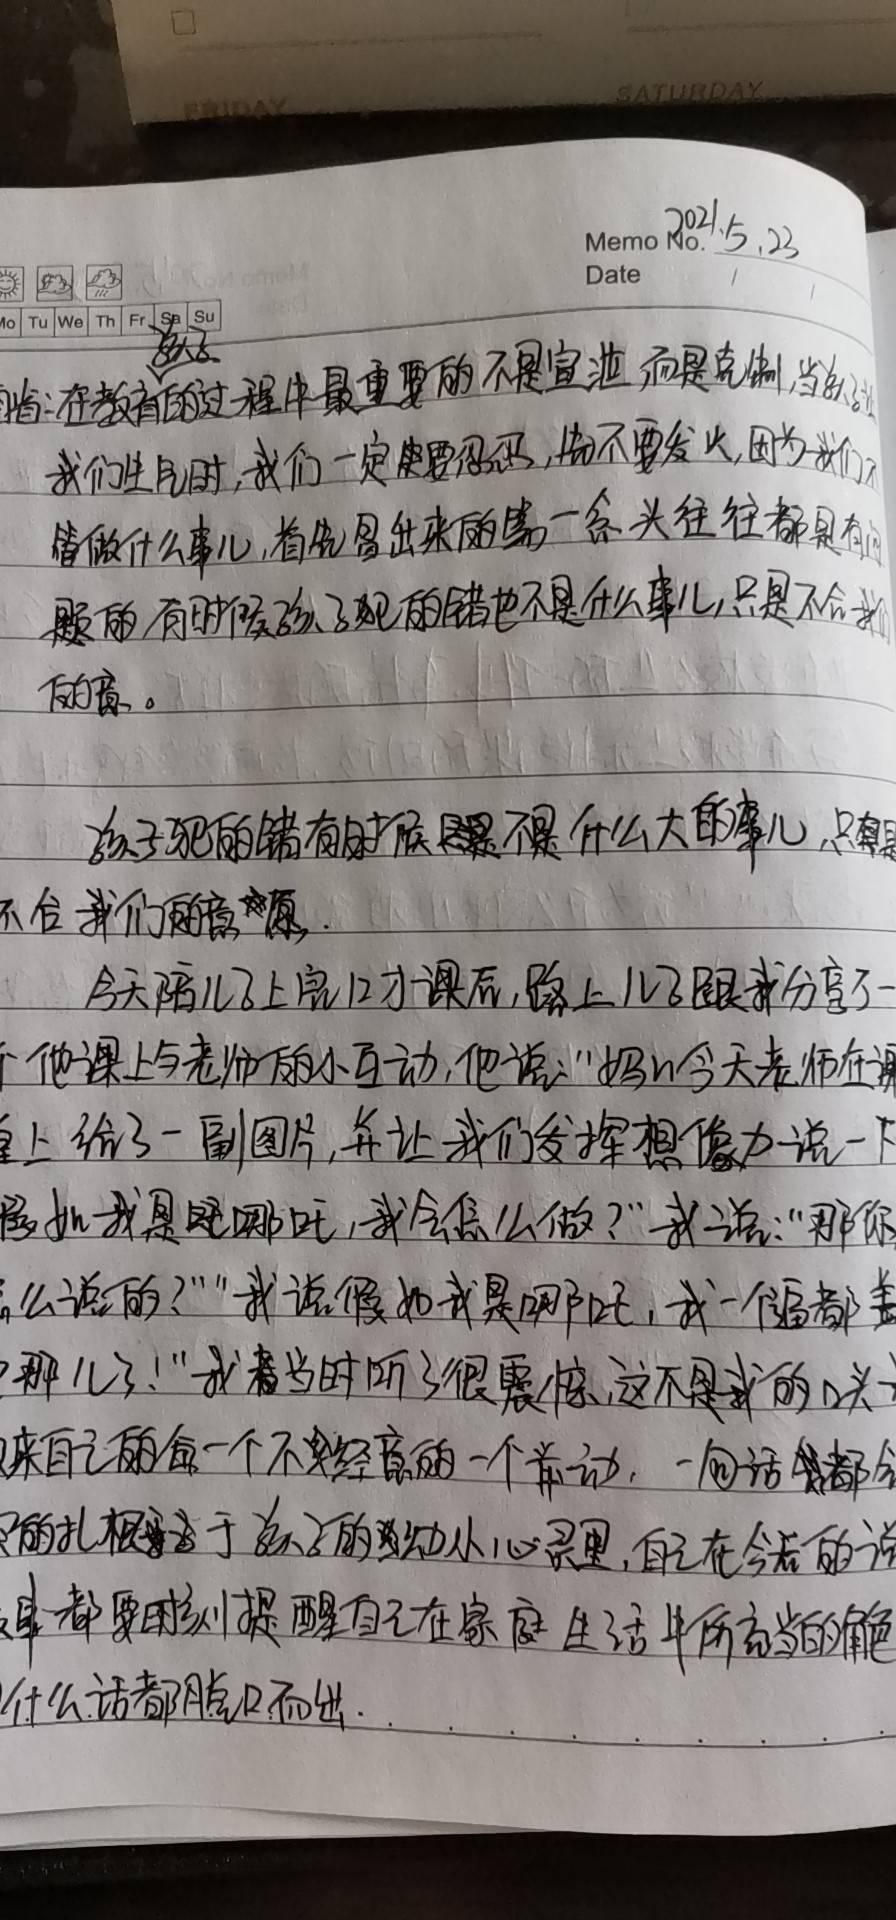 FRIDAY
SATURDAY
Memo No. 2021.5.23
Date
Mo Tu We Th Fr Sa Su
孩子
在教育的过程中最重要的不是宣泄,而是克制,当孩子让
我们生气时,我们一定要忍而不要发火,因为我们不
管做什么事儿,首先冒出来的第一念头往往都是有问
题的 有时候孩子犯的错也不是什么事儿,只是不合我们
的意。
孩子犯的错有时候不是什么大的事儿,只是
不合我们的意愿.
今天陪儿子上完口才课后,路上儿子跟我分享了一
个他课上与老师的小互动,他说:"妈妈今天老师在课
堂上给了一副图片,并让我们发挥想像力说一下
假如我是哪吒,我会怎么做?"我说:"那你
怎么说的?""我说假如我是哪吒,我一个逼都
那儿了!"我当时听了很震惊,这不是我的口头
来自己的每一个不经意的一个举动,一句话都会
的扎根于孩子的幼小心灵里,自己在今后的说
事都要时刻提醒自己在家庭生活中所充当的角色
什么话都脱口而出.